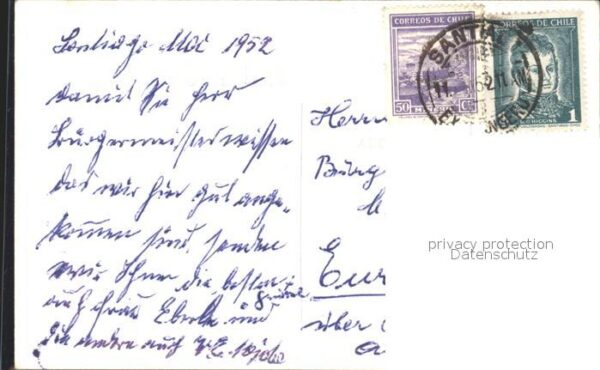 Santiago Mai 1952
damit Sie Herr
Bürgermeister wissen
das wir hier gut ange-
kommen sind, senden
wir Ihnen die besten
Grüße
auch Frau Eberle und
die andere auch
Herrn
Bürg
M
Eur
über
CORREOS DE CHILE
50 C
CORREOS DE CHILE
O'HIGGINS
1
SANTIA
privacy protection
Datenschutz